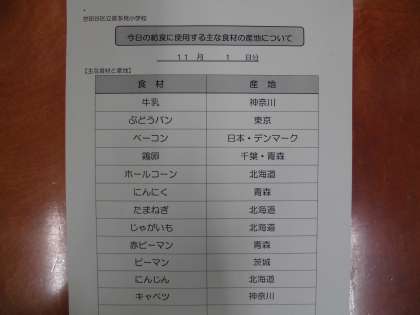 世田谷区立喜多見小学校
今日の給食に使用する主な食材の産地について
11 月 1 日分
【主な食材と産地】
食 材 産 地
牛乳 神奈川
ぶどうパン 東京
ベーコン 日本・デンマーク
鶏卵 千葉・青森
ホールコーン 北海道
にんにく 青森
たまねぎ 北海道
じゃがいも 北海道
赤ピーマン 青森
ピーマン 茨城
にんじん 北海道
キャベツ 神奈川